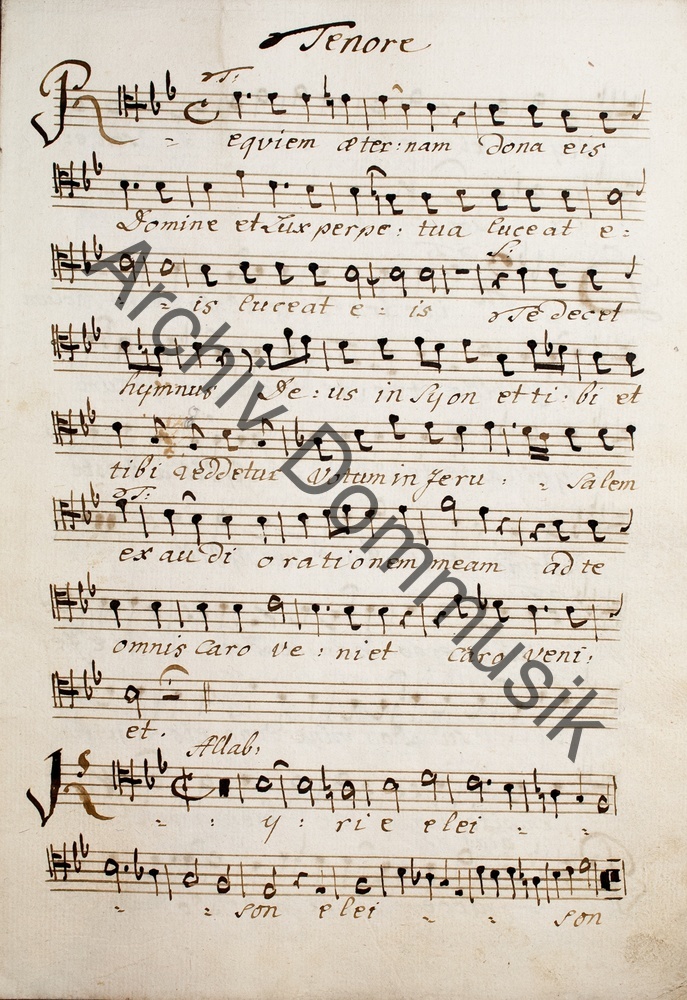 Tenore
T:
Requiem æter:nam dona eis
Domine et Lux perpe: tua luceat e-
- - is luceat e: is Te decet
S:
hymnus De: us in Syon et ti: bi et
tibi reddetur Votum in Jeru: - salem
T:
exaudi orationem meam ad te
omnis Caro ve: niet Caro veni:
et.
Allab:
K - : y: rie elei - -
- - son elei - - son
Archiv Dommusik